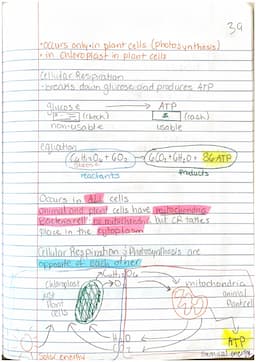 39
•occurs only in plant cells (photosynthesis)
• in chloroplast in plant cells
Cellular Respiration
•breaks down glucose and produces ATP
glucose → ATP
(check) $ (cash)
non-usable usable
equation
C6H12O6 + 6O2 → 6CO2 + 6H2O + 36 ATP
glucose
reactants products
Occurs in ALL cells
animal and plant cells have mitochondria
Bacteria cell no mitochondria, but CR takes
place in the cytoplasm
Cellular Respiration & Photosynthesis are
opposite of each other
C6H12O6
chloroplast mitochondria
just animal
Plant Plant cell
cells
ATP
solar energy chemical energy